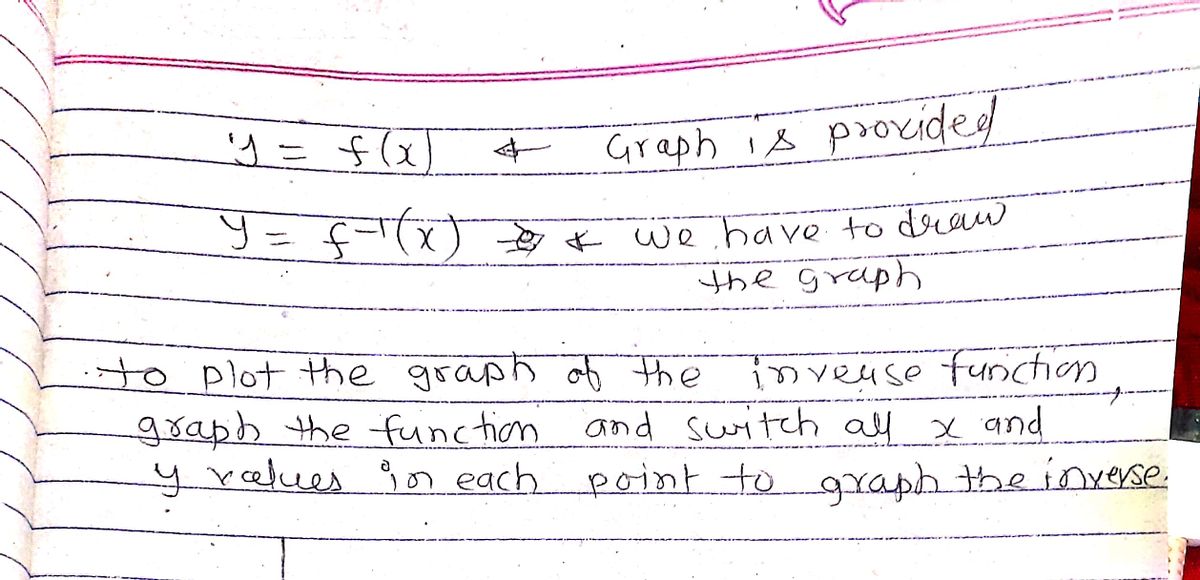 y = f(x) ← Graph is provided
y = f⁻¹(x) ← we have to draw
the graph
to plot the graph of the inverse function,
graph the function and switch all x and
y values in each point to graph the inverse.